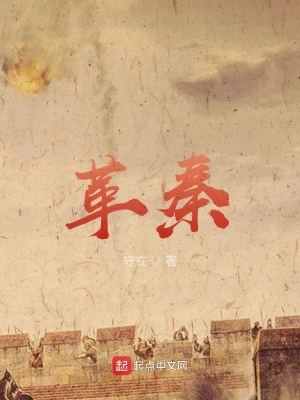 革秦
守玄 著
起 起点中文网